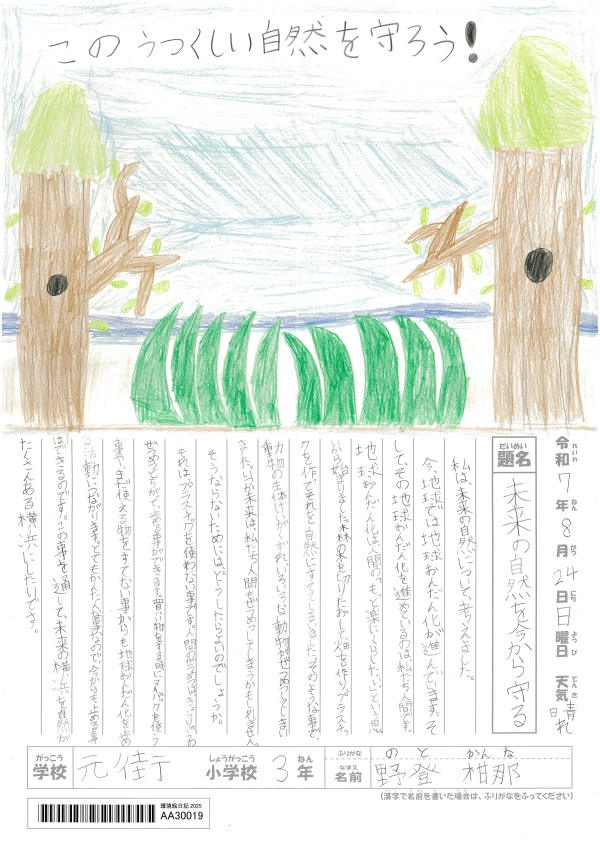 このうつくしい自然を守ろう!
れいわ ねん がつ にち ようび てんき
令和7年8月24日日曜日 天気 晴れ
だいめい
題名 未来の自然を今から守る
私は、未来の自然について、考えました。
今、地球では地球おんだん化が進んでいます。そ
して、その地球おんだん化を進めているのは私たち人間です。
地球おんだん化は、人間の「もっと楽にくらしたい」という思
いから始まりました。森の木を切りたおして畑を作りプラスチッ
クを作でそれを自然にすててしまいました。そのような事で、
動物の生体けいがくずれいろいろな動物がぜつめつしてしまい
ました。いつか未来は、私たち人間もぜつめつしてしまうかもしれません。
そうならないためには、どうしたらよいのでしょうか。
それはプラスチックを使わない事です。人間のぜつめつは
ぜつめつもがくい止める事ができます。買い物をする時にマイバックを使う
事や、まだ使える物をすてない事からも地球おんだん化を止め
る活動につながります。とてもかんたんな事なので、今からも止める事
はできるのです。この事を通して、未来の横浜を自然が
たくさんある横浜にしたいです。
がっこう しょうがっこう ねん ふりがな の と かん な
学校 元街 小学校 3年 なまえ 名前 野登 柑那
(漢字で名前を書いた場合は、ふりがなをふってください)
環境絵日記 2025
AA30019